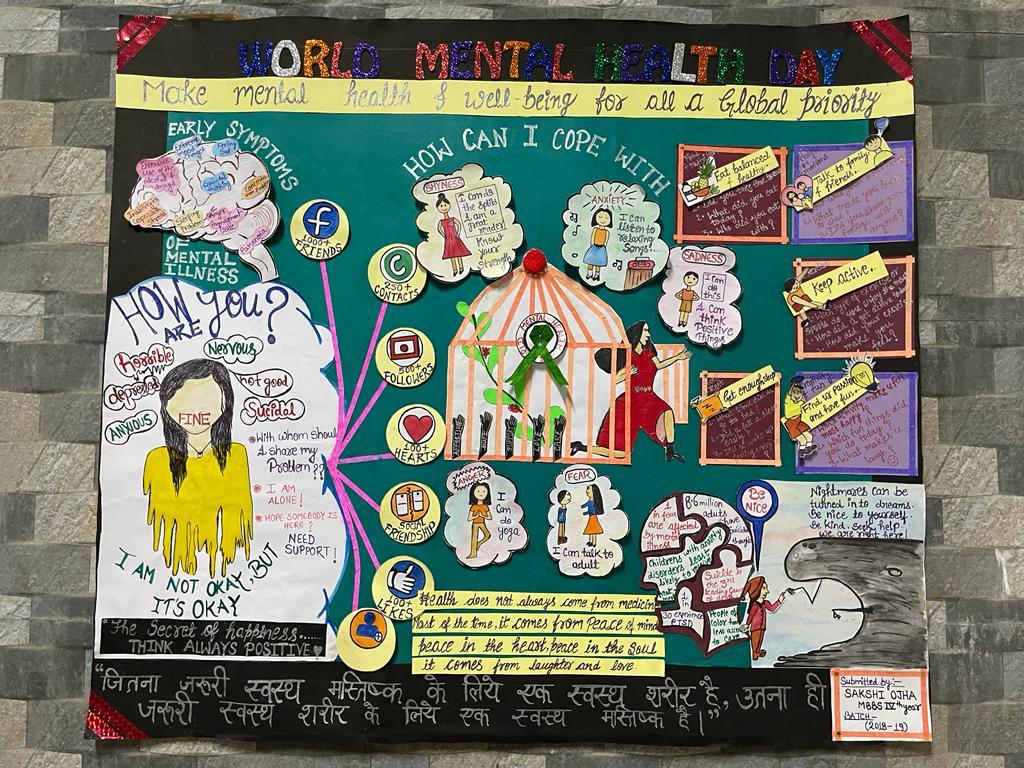 WORLD MENTAL HEALTH DAY
Make mental health & well-being for all a Global priority
EARLY SYMPTOMS
Feeling Sad
OF
MENTAL
ILLNESS
HOW
ARE
YOU?
horrible
Nervous
depressed
not good
Suicidal
ANXIOUS
FINE
With whom should
I share my
Problem??
I AM
ALONE!
HOPE SOMEBODY IS
HERE?
NEED
SUPPORT!
I AM NOT OKAY, BUT
IT'S OKAY
The Secret of happiness......
THINK ALWAYS POSITIVE
1000+
FRIENDS
C
250+
CONTACTS
500+
FOLLOWERS
HEARTS
SOCIAL
FRIENDSHIP
LIKES
HOW CAN I COPE WITH
SHYNESS
I can do
the splits
I am a
great
reader!
Know
your
strength
ANXIETY
I can
listen to
relaxing
Songs!..
SADNESS
I can
do
this
I can
think
Positive
Things
MENTAL HEALTH
ANGER
I
can
do
yoga
FEAR
I can talk to
adult
Eat balanced
& healthy.
Talk to family
& friends.
Keep active...
Get enough sleep
Find us passion
and have fun..
8.6 million
adults
have
Suicidal
1 in
are affected
by mental
illness
children with anxiety
disorders least
likely to
Suicide is
the 3rd
leading
30 experience
PTSD
People of
color
less
to care
BE
NICE
Nightmares can be
turned in to dreams.
Be nice to yourself.
Be kind. Seek help,
we are right here!
Health does not always come from medicin
Most of the time, it comes from Peace of mind
peace in the heart, peace in the Soul
it comes from laughter and love.
"जितना जरूरी स्वस्थ मस्तिष्क के लिये एक स्वस्थ शरीर है, उतना ही
जरूरी स्वस्थ शरीर के लिये एक स्वस्थ मस्तिष्क है।"
Submitted by:-
SAKSHI OJHA
MBBS IVth year
BATCH-
(2018-19)